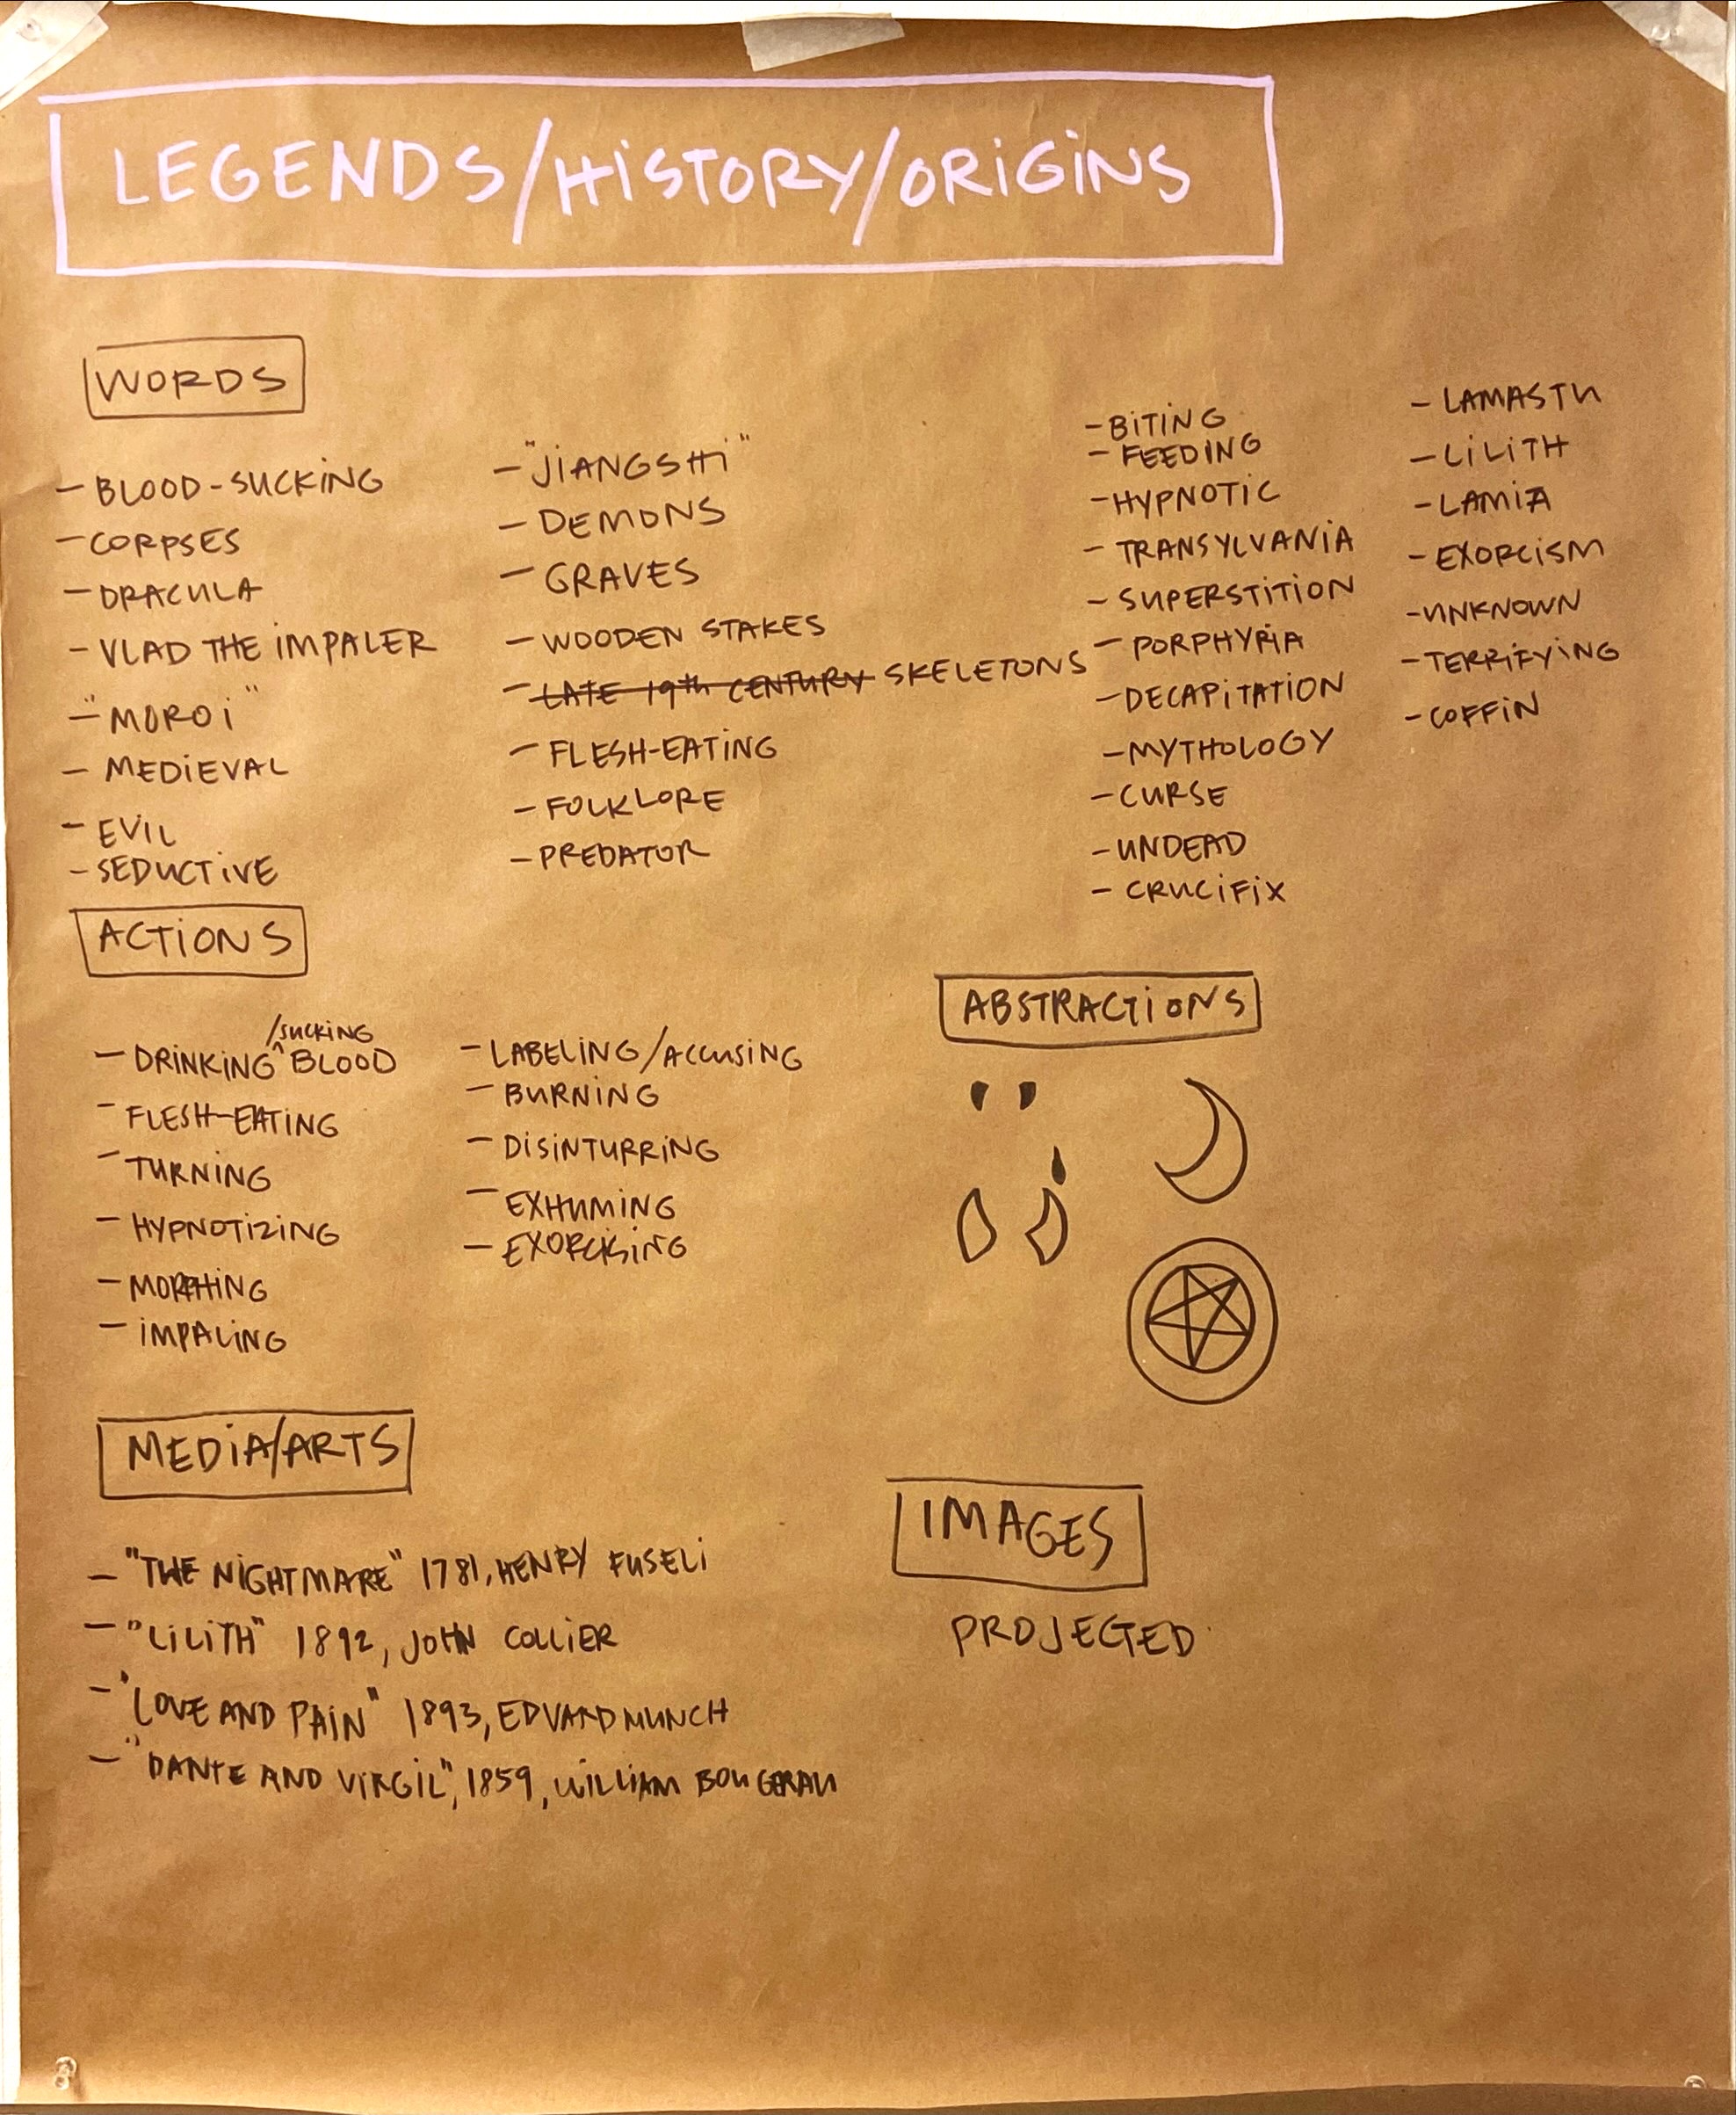 LEGENDS/HISTORY/ORIGINS
WORDS
- BLOOD-SUCKING
- CORPSES
- DRACULA
- VLAD THE IMPALER
- "MOROI"
- MEDIEVAL
- EVIL
- SEDUCTIVE
- "JIANGSHI"
- DEMONS
- GRAVES
- WOODEN STAKES
- LATE 19th CENTURY SKELETONS
- FLESH-EATING
- FOLKLORE
- PREDATOR
- BITING
- FEEDING
- HYPNOTIC
- TRANSYLVANIA
- SUPERSTITION
- PORPHYRIA
- DECAPITATION
- MYTHOLOGY
- CURSE
- UNDEAD
- CRUCIFIX
- LAMASTU
- LILITH
- LAMIA
- EXORCISM
- UNKNOWN
- TERRIFYING
- COFFIN
ACTIONS
- DRINKING /SUCKING BLOOD
- FLESH-EATING
- TURNING
- HYPNOTIZING
- MORPHING
- IMPALING
- LABELING/ACCUSING
- BURNING
- DISINTURRING
- EXHUMING
- EXORCISING
ABSTRACTIONS
MEDIA/ARTS
- "THE NIGHTMARE" 1781, HENRY FUSELI
- "LILITH" 1892, JOHN COLLIER
- "LOVE AND PAIN" 1893, EDVARD MUNCH
- "DANTE AND VIRGIL", 1859, WILLIAM BOUGERAU
IMAGES
PROJECTED